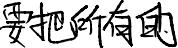 要把所有的